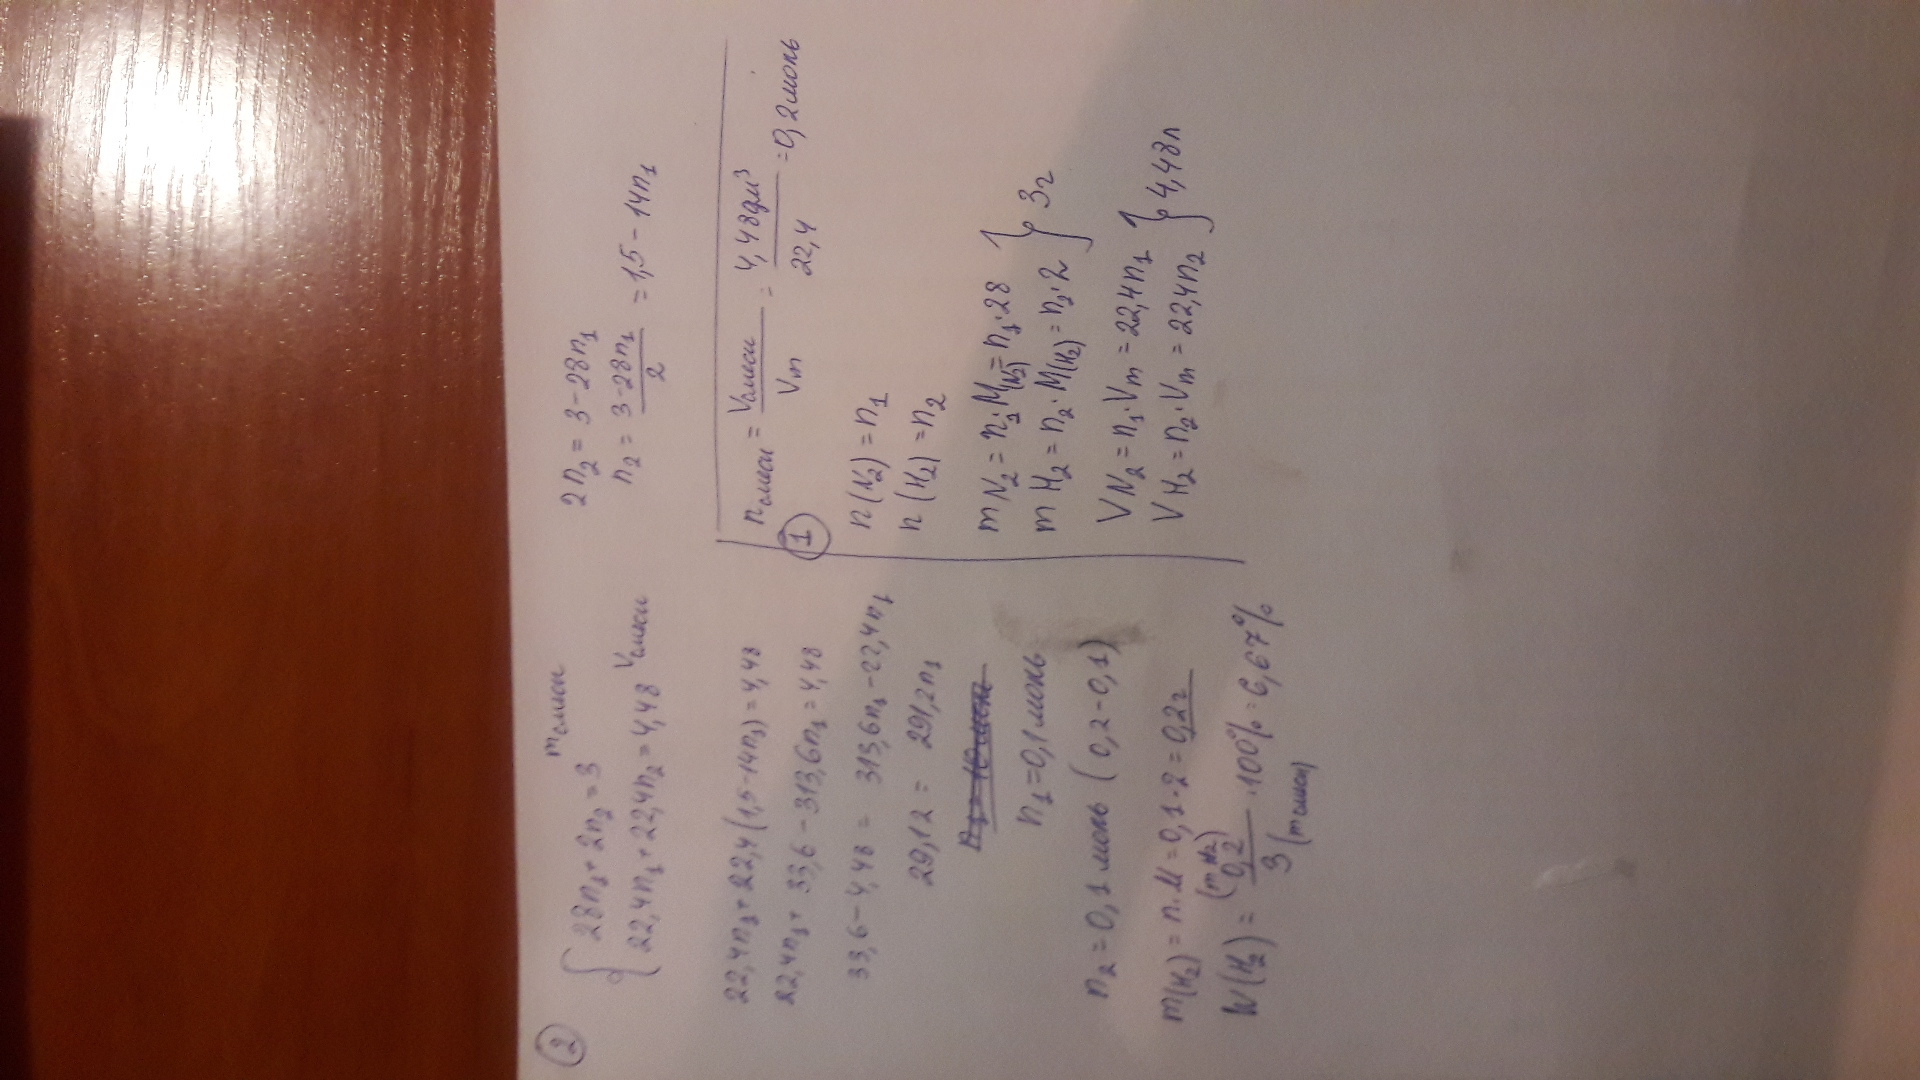 ② { 28n₁ + 2n₂ = 3 m смеси
22,4n₁ + 22,4n₂ = 4,48 V смеси
2n₂ = 3 - 28n₁
n₂ = (3 - 28n₁)/2 = 1,5 - 14n₁
22,4n₁ + 22,4(1,5 - 14n₁) = 4,48
22,4n₁ + 33,6 - 313,6n₁ = 4,48
33,6 - 4,48 = 313,6n₁ - 22,4n₁
29,12 = 291,2n₁
n₁ = 0,1 моль
n₂ = 0,1 моль (0,2 - 0,1)
m(H₂) = n·M = 0,1·2 = 0,2г
W(H₂) = (m H₂) 0,2 / 3 (m смеси) · 100% = 6,67%
① n смеси = V смеси / Vm = 4,48дм³ / 22,4 = 0,2моль
n(N₂) = n₁
n(H₂) = n₂
m N₂ = n₁·M(N₂) = n₁·28
m H₂ = n₂·M(H₂) = n₂·2 } 3г
V N₂ = n₁·Vm = 22,4n₁
V H₂ = n₂·Vm = 22,4n₂ } 4,48л